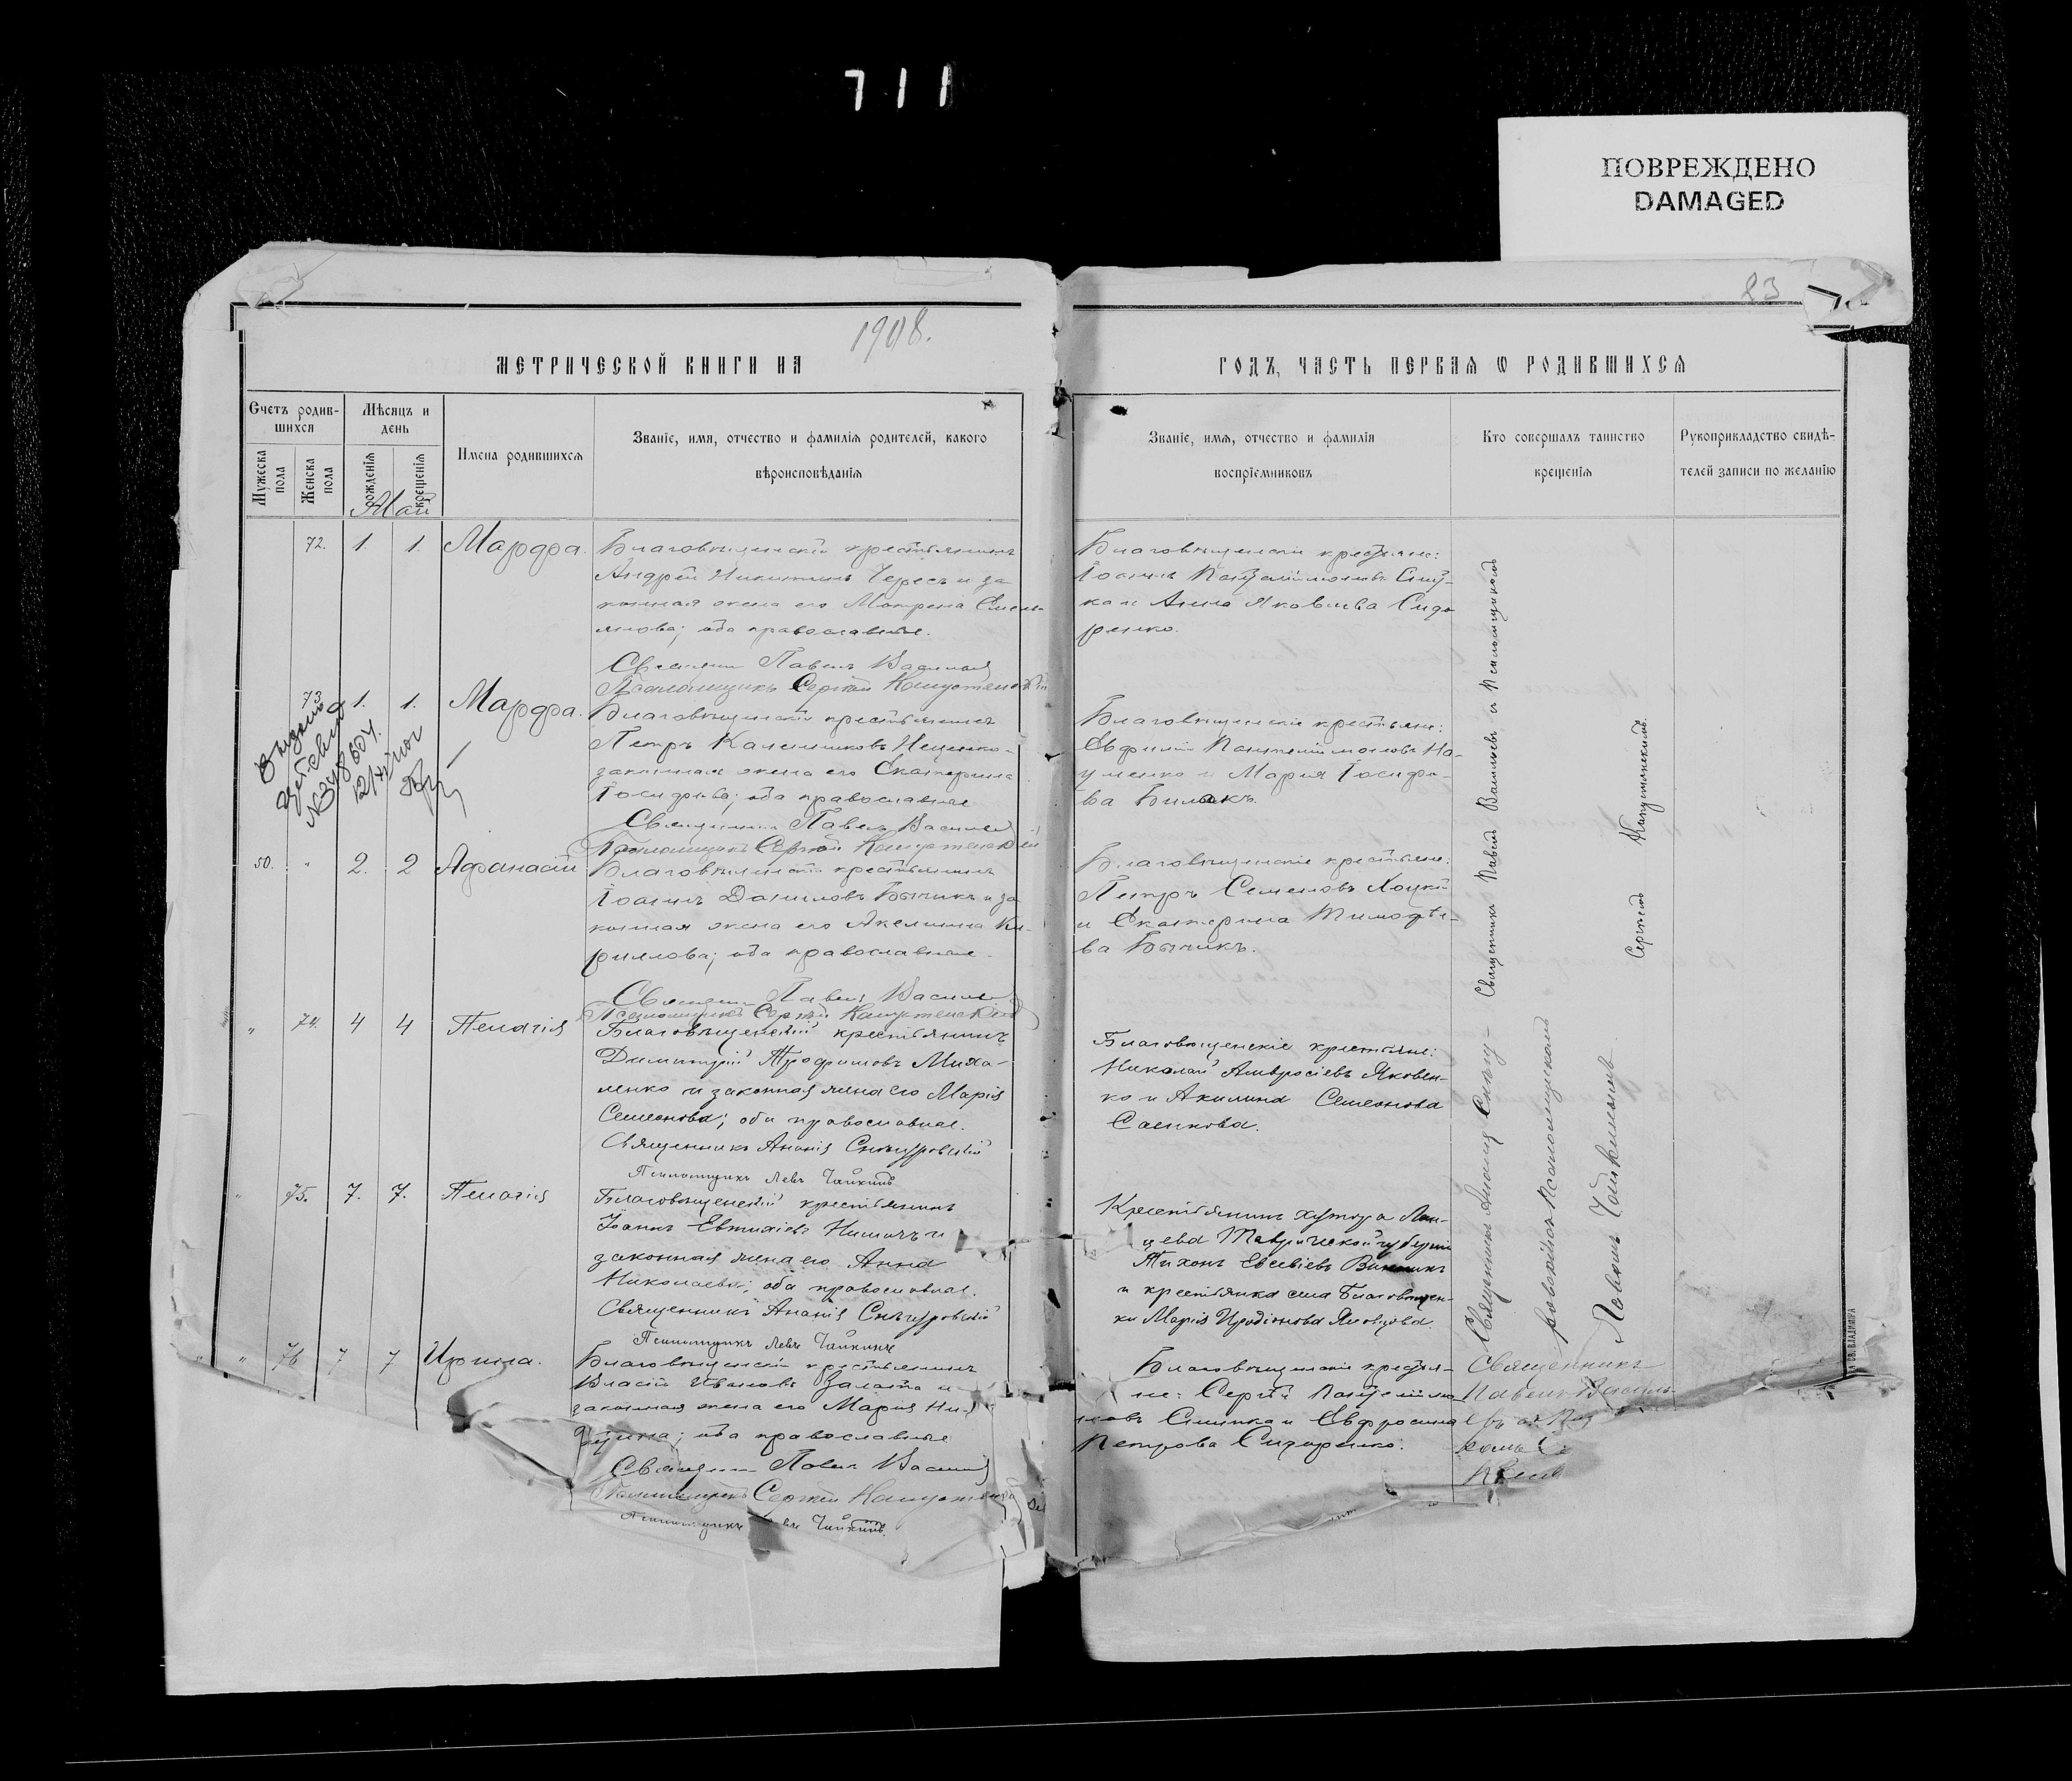 711
ПОВРЕЖДЕНО
DAMAGED
23
1908.
МЕТРИЧЕСКОЙ КНИГИ НА
ГОДЪ, ЧАСТЬ ПЕРВАЯ Ѡ РОДИВШИХСЯ
Счетъ родив-
шихся
Мужеска
пола
Женска
пола
Мѣсяцъ и
день
рожденія
крещенія
Имена родившихся
Званіе, имя, отчество и фамилія родителей, какого
вѣроисповѣданія
Званіе, имя, отчество и фамилія
воспріемниковъ
Кто совершалъ таинство
крещенія
Рукоприкладство свидѣ-
телей записи по желанію
Май
72. 1. 1. Марфа.
Благовѣщенскій крестьянинъ
Андрей Никитинъ Чересъ и за
конная жена его Матрена Емель
янова; оба православные.
Священ Павелъ Васильев
Псаломщикъ Сергѣй Капустянскій
Благовѣщенскіе крестьяне:
Іоаннъ Пантелеимоновъ
ка и Анна Яковлева Сидо
ренко.
73 1. 1. Марфа.
Выдано
№348604.
Благовѣщенскій крестьянинъ
Петръ Калинниковъ Ищенко
законная жена его Екатерина
Іосифова; оба православные
Священник Павелъ Васильев
Псаломщикъ Сергѣй Капустянскій
Благовѣщенскіе крестьяне:
Евфимій Пантелеимоновъ На-
уменко и Марія Іосифо-
ва Билакъ.
50. " 2. 2 Афанасій
Благовѣщенскій крестьянинъ
Іоаннъ Даниловъ Бычикъ и за
конная жена его Акилина Ки-
риллова; оба православные.
Священ Павелъ Васильев
Псаломщикъ Сергѣй Капустянскій
Благовѣщенскіе крестьяне:
Петръ Семеновъ Хоцкій
и Екатерина Тимофѣе-
ва Бычикъ.
Священникъ Павелъ Васильевъ и псаломщикомъ
Сергѣемъ Капустянскимъ.
" 74. 4 4 Пелагія
Благовѣщенскій крестьянинъ
Димитрій Трофимовъ Миха-
ленко и законная жена его Марія
Семеонова; оба православные.
Священникъ Ананія Снѣгуровскій
Псаломщикъ Левъ Чайкинъ
Благовѣщенскіе крестьяне:
Николай Амвросіевъ Яковен-
ко и Акилина Семеонова
Саенкова.
" 75. 7. 7. Пелагія
Благовѣщенскій крестьянинъ
Іоаннъ Евтихіевъ и
законная жена его Анна
Николаева; оба православные.
Священникъ Ананія Снѣгуровскій
Псаломщикъ Левъ Чайкинъ
Крестьянинъ хутора
цева Таврической губерніи
Тихонъ Евсевіевъ Винникъ
и крестьянка села Благовѣщен-
ки Марія Иродіонова Яковцова.
Священникъ Ананія Снѣгу-
ровскій съ псаломщикомъ
Львомъ Чайкинымъ
" 76 7 7 Ирина.
Благовѣщенскій крестьянинъ
Власій Ивановъ Залата и
законная жена его Марія Ни-
оба православные
Священ Павелъ Васильев
Псаломщикъ Сергѣй Капустянскій
Псаломщикъ Левъ Чайкинъ.
Благовѣщенскіе крестья-
не: Сергѣй Пантелеимо
новъ и Евфросинія
Петрова Сидоренко.
Священникъ
Павелъ Василь-
евъ